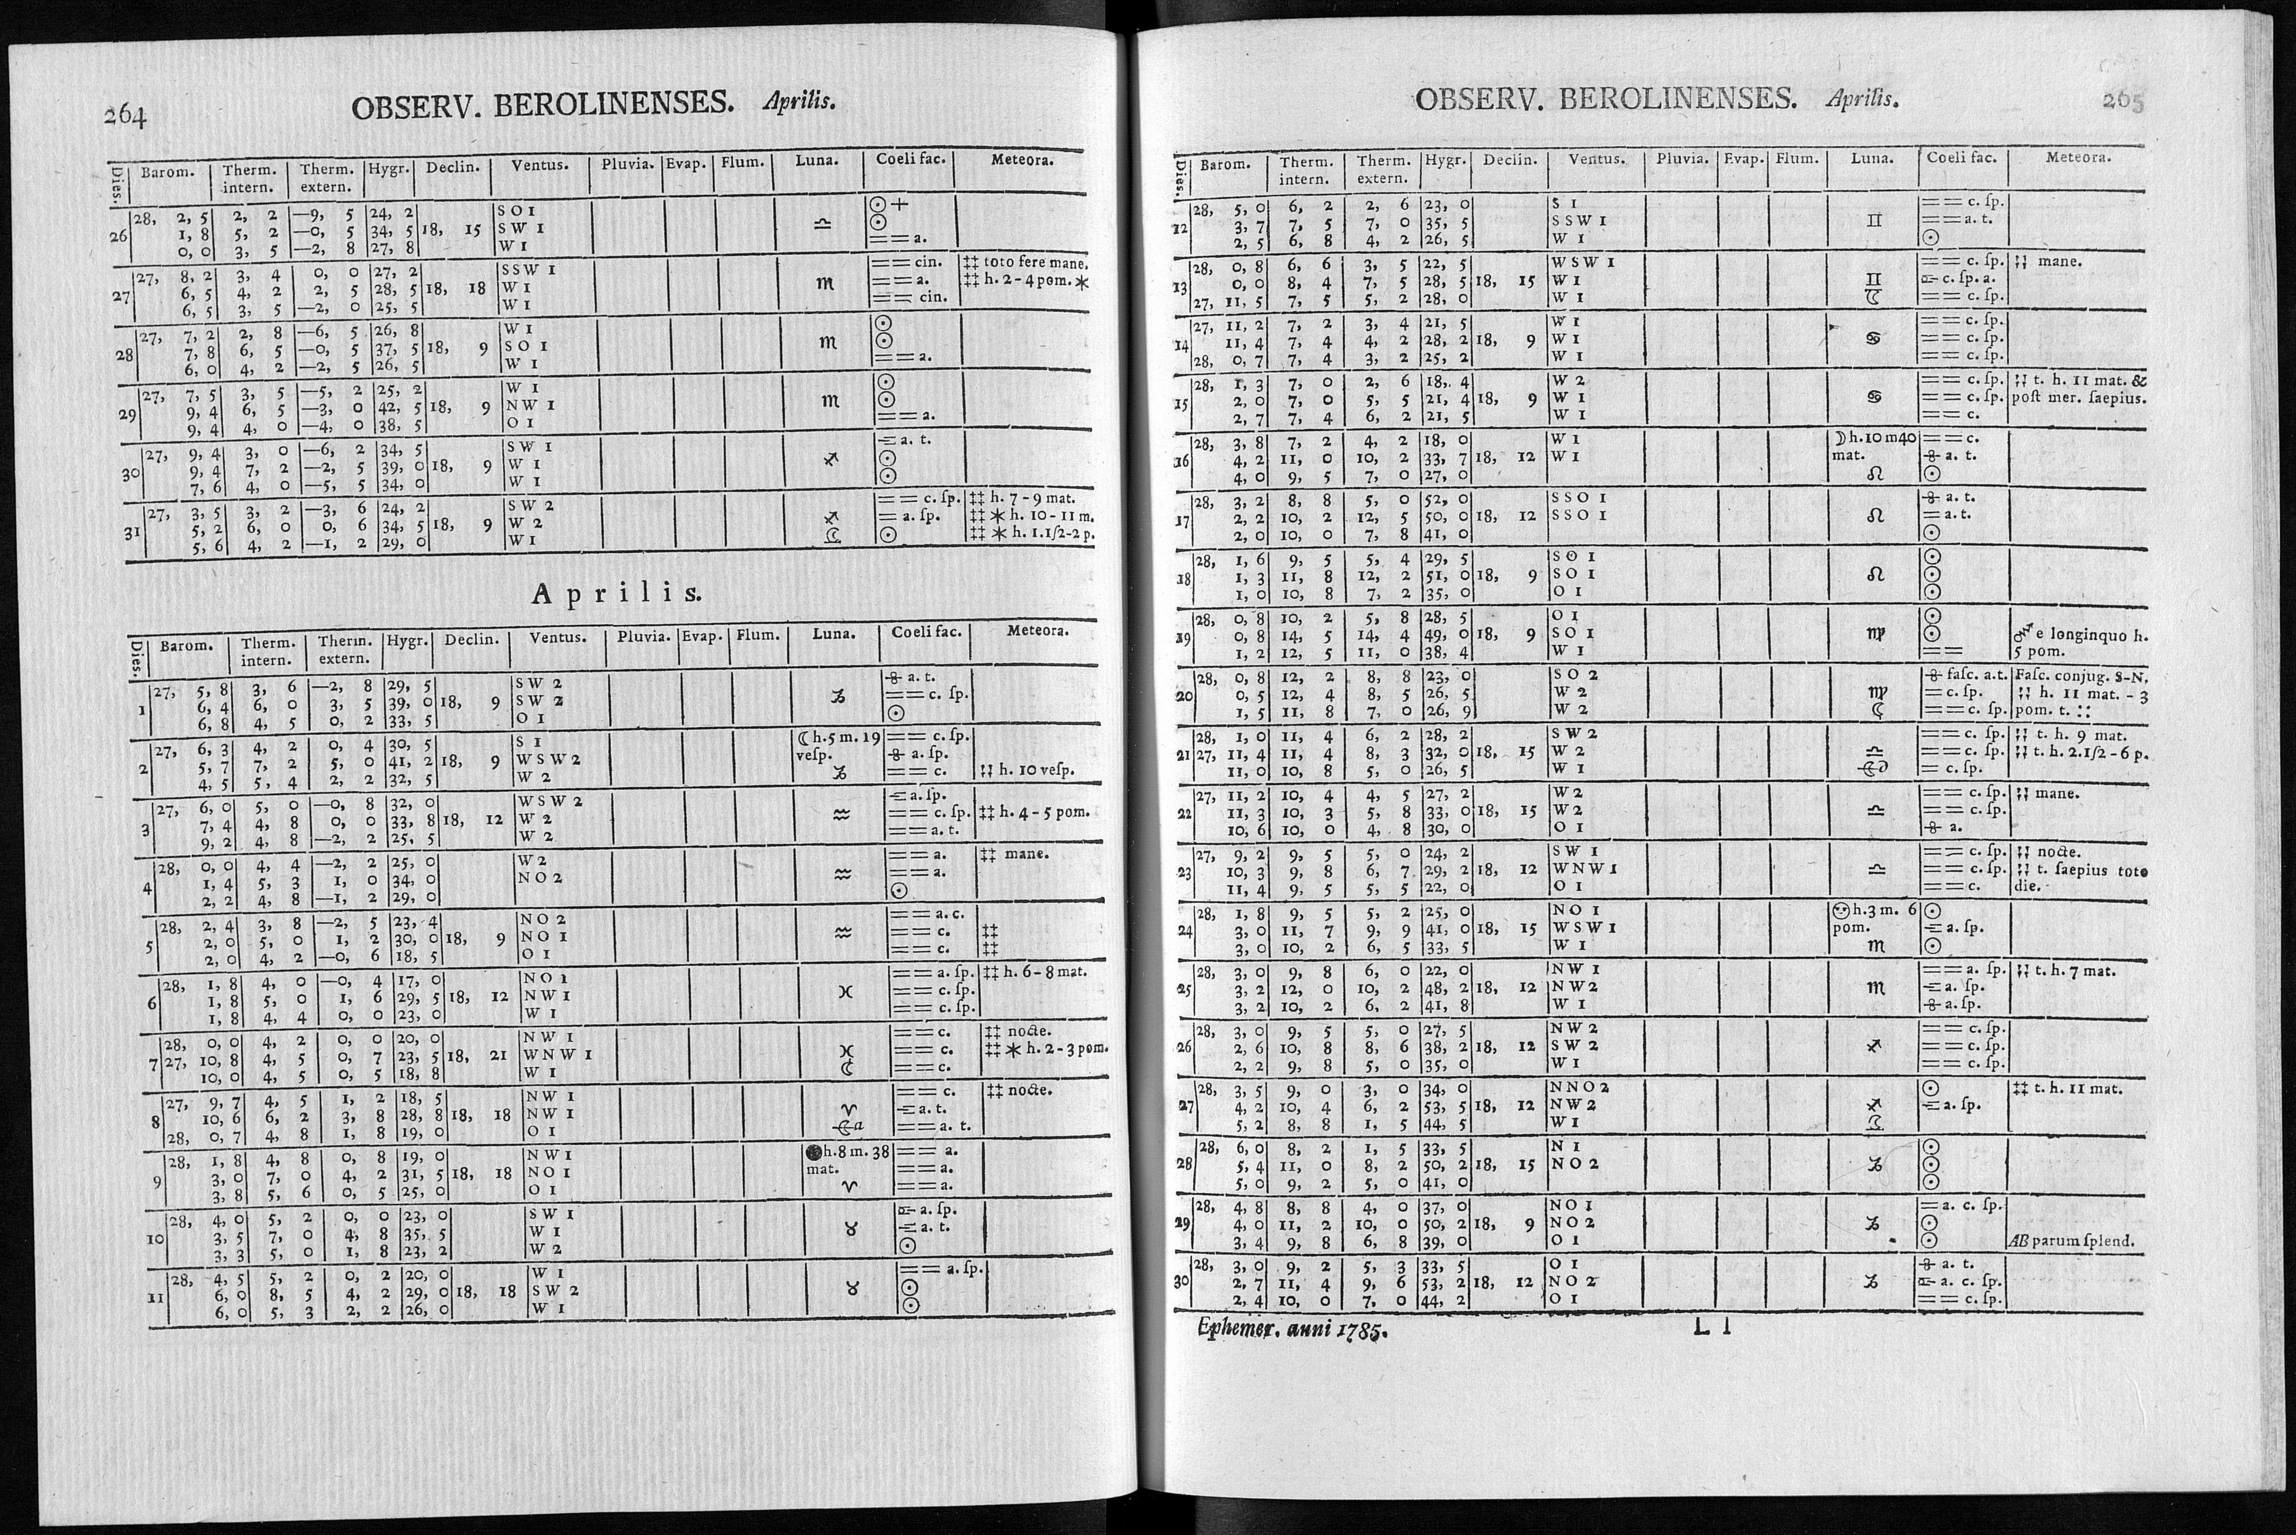 264 OBSERV. BEROLINENSES. Aprilis.
Dies. Barom. Therm. intern. Therm. extern. Hygr. Declin. Ventus. Pluvia. Evap. Flum. Luna. Coeli fac. Meteora.
28, 2, 5 2, 2 —9, 5 24, 2 SO 1 ☉ +
26 1, 8 5, 2 —0, 5 34, 5 18, 15 SW 1 ♎ ☉
0, 0 3, 5 —2, 8 27, 8 W 1 == a.
27, 8, 2 3, 4 0, 0 27, 2 SSW 1 == cin. ‡‡ toto fere mane.
27 6, 5 4, 2 2, 5 28, 5 18, 18 W 1 ♏ == a. ‡‡ h. 2-4 pom. *
6, 5 3, 5 —2, 0 25, 5 W 1 == cin.
27, 7, 2 2, 8 —6, 5 26, 8 W 1 ☉
28 7, 8 6, 5 —0, 5 37, 5 18, 9 SO 1 ♏ ☉
6, 0 4, 2 —2, 5 26, 5 W 1 == a.
27, 7, 5 3, 5 —5, 2 25, 2 W 1 ☉
29 9, 4 6, 5 —3, 0 42, 5 18, 9 NW 1 ♏ ☉
9, 4 4, 0 —4, 0 38, 5 O 1 == a.
27, 9, 4 3, 0 —6, 2 34, 5 SW 1 a. t.
30 9, 4 7, 2 —2, 5 39, 0 18, 9 W 1 ♐ ☉
7, 6 4, 0 —5, 5 34, 0 W 1 ☉
27, 3, 5 3, 2 —3, 6 24, 2 SW 2 == c. ſp. ‡‡ h. 7-9 mat.
31 5, 2 6, 0 0, 6 34, 5 18, 9 W 2 ♐ = a. ſp. ‡‡ * h. 10-11 m.
5, 6 4, 2 —1, 2 29, 0 W 1 ☾ ☉ ‡‡ * h. 1.1/2-2 p.
Aprilis.
Dies. Barom. Therm. intern. Therm. extern. Hygr. Declin. Ventus. Pluvia. Evap. Flum. Luna. Coeli fac. Meteora.
27, 5, 8 3, 6 —2, 8 29, 5 SW 2 a. t.
1 6, 4 6, 0 3, 5 39, 0 18, 9 SW 2 ♑ == c. ſp.
6, 8 4, 5 0, 2 33, 5 O 1 ☉
27, 6, 3 4, 2 0, 4 30, 5 S 1 ☾ h. 5 m. 19 == c. ſp.
2 5, 7 7, 2 5, 0 41, 2 18, 9 WSW 2 veſp. a. ſp.
4, 5 5, 4 2, 2 32, 5 W 2 ♑ == c. ¦¦ h. 10 veſp.
27, 6, 0 5, 0 —0, 8 32, 0 WSW 2 a. ſp.
3 7, 4 4, 8 0, 0 33, 8 18, 12 W 2 ♒ == c. ſp. ‡‡ h. 4-5 pom.
9, 2 4, 8 —2, 2 25, 5 W 2 == a. t.
28, 0, 0 4, 4 —2, 2 25, 0 W 2 == a. ‡‡ mane.
4 1, 4 5, 3 1, 0 34, 0 NO 2 ♒ == a.
2, 2 4, 8 —1, 2 29, 0 ☉
28, 2, 4 3, 8 —2, 5 23, 4 NO 2 == a. c.
5 2, 0 5, 0 1, 2 30, 0 18, 9 NO 1 ♒ == c. ‡‡
2, 0 4, 2 —0, 6 18, 5 O 1 == c. ‡‡
28, 1, 8 4, 0 —0, 4 17, 0 NO 1 == a. ſp. ‡‡ h. 6-8 mat.
6 1, 8 5, 0 1, 6 29, 5 18, 12 NW 1 ♓ == c. ſp.
1, 8 4, 4 0, 0 23, 0 W 1 == c. ſp.
28, 0, 0 4, 2 0, 0 20, 0 NW 1 == c. ‡‡ nocte.
7 27, 10, 8 4, 5 0, 7 23, 5 18, 21 WNW 1 ♓ == c. ‡‡ * h. 2-3 pom.
10, 0 4, 5 0, 5 18, 8 W 1 ☾ == c.
27, 9, 7 4, 5 1, 2 18, 5 NW 1 == c. ‡‡ nocte.
8 10, 6 6, 2 3, 8 28, 8 18, 18 NW 1 ♈ a. t.
28, 0, 7 4, 8 1, 8 19, 0 O 1 a == a. t.
28, 1, 8 4, 8 0, 8 19, 0 NW 1 ● h. 8 m. 38 == a.
9 3, 0 7, 0 4, 2 31, 5 18, 18 NO 1 mat. == a.
3, 8 5, 6 0, 5 25, 0 O 1 ♈ == a.
28, 4, 0 5, 2 0, 0 23, 0 SW 1 a. ſp.
10 3, 5 7, 0 4, 8 35, 5 W 1 ♉ a. t.
3, 3 5, 0 1, 8 23, 2 W 2 ☉
28, 4, 5 5, 2 0, 2 20, 0 W 1 == a. ſp.
11 6, 0 8, 5 4, 2 29, 0 18, 18 SW 2 ♉ ☉
6, 0 5, 3 2, 2 26, 0 W 1 ☉
OBSERV. BEROLINENSES. Aprilis. 265
Dies. Barom. Therm. intern. Therm. extern. Hygr. Declin. Ventus. Pluvia. Evap. Flum. Luna. Coeli fac. Meteora.
28, 5, 0 6, 2 2, 6 23, 0 S 1 == c. ſp.
12 3, 7 7, 5 7, 0 35, 5 SSW 1 ♊ == a. t.
2, 5 6, 8 4, 2 26, 5 W 1 ☉
28, 0, 8 6, 6 3, 5 22, 5 WSW 1 == c. ſp. ¦¦ mane.
13 0, 0 8, 4 7, 5 28, 5 18, 15 W 1 ♊ c. ſp. a.
27, 11, 5 7, 5 5, 2 28, 0 W 1 ☾ == c. ſp.
27, 11, 2 7, 2 3, 4 21, 5 W 1 == c. ſp.
14 11, 4 7, 4 4, 2 28, 2 18, 9 W 1 ♋ == c. ſp.
28, 0, 7 7, 4 3, 2 25, 2 W 1 == c. ſp.
28, 1, 3 7, 0 2, 6 18, 4 W 2 == c. ſp. ¦¦ t. h. 11 mat. &
15 2, 0 7, 0 5, 5 21, 4 18, 9 W 1 ♋ == c. ſp. poſt mer. ſaepius.
2, 7 7, 4 6, 2 21, 5 W 1 == c.
28, 3, 8 7, 2 4, 2 18, 0 W 1 ☽ h. 10 m 40 == c.
16 4, 2 11, 0 10, 2 33, 7 18, 12 W 1 mat. a. t.
4, 0 9, 5 7, 0 27, 0 ♌ ☉
28, 3, 2 8, 8 5, 0 52, 0 SSO 1 a. t.
17 2, 2 10, 2 12, 5 50, 0 18, 12 SSO 1 ♌ = a. t.
2, 0 10, 0 7, 8 41, 0 ☉
28, 1, 6 9, 5 5, 4 29, 5 SO 1 ☉
18 1, 3 11, 8 12, 2 51, 0 18, 9 SO 1 ♌ ☉
1, 0 10, 8 7, 2 35, 0 O 1 ☉
28, 0, 8 10, 2 5, 8 28, 5 O 1 ☉
19 0, 8 14, 5 14, 4 49, 0 18, 9 SO 1 ♍ ☉ e longinquo h.
1, 2 12, 5 11, 0 38, 4 W 1 == 5 pom.
28, 0, 8 12, 2 8, 8 23, 0 SO 2 faſc. a. t. Faſc. conjug. S-N,
20 0, 5 12, 4 8, 5 26, 5 W 2 ♍ = c. ſp. ¦¦ h. 11 mat. - 3
1, 5 11, 8 7, 0 26, 9 W 2 ☾ == c. ſp. pom. t. ::
28, 1, 0 11, 4 6, 2 28, 2 SW 2 == c. ſp. ¦¦ t. h. 9 mat.
21 27, 11, 4 11, 4 8, 3 32, 0 18, 15 W 2 ♎ == c. ſp. ¦¦ t. h. 2.1/2-6 p.
11, 0 10, 8 5, 0 26, 5 W 1 = c. ſp.
27, 11, 2 10, 4 4, 5 27, 2 W 2 == c. ſp. ¦¦ mane.
22 11, 3 10, 3 5, 8 33, 0 18, 15 W 2 ♎ == c. ſp.
10, 6 10, 0 4, 8 30, 0 O 1 a.
27, 9, 2 9, 5 5, 0 24, 2 SW 1 == c. ſp. ¦¦ nocte.
23 10, 3 9, 8 6, 7 29, 2 18, 12 WNW 1 ♎ == c. ſp. ¦¦ t. ſaepius toto
11, 4 9, 5 5, 5 22, 0 O 1 == c. die.
28, 1, 8 9, 5 5, 2 25, 0 NO 1 h. 3 m. 6 ☉
24 3, 0 11, 7 9, 9 41, 0 18, 15 WSW 1 pom. a. ſp.
3, 0 10, 2 6, 5 33, 5 W 1 ♏ ☉
28, 3, 0 9, 8 6, 0 22, 0 NW 1 == a. ſp. ¦¦ t. h. 7 mat.
25 3, 2 12, 0 10, 2 48, 2 18, 12 NW 2 ♏ a. ſp.
3, 2 10, 2 6, 2 41, 8 W 1 a. ſp.
28, 3, 0 9, 5 5, 0 27, 5 NW 2 == c. ſp.
26 2, 6 10, 8 8, 6 38, 2 18, 12 SW 2 ♐ == c. ſp.
2, 2 9, 8 5, 0 35, 0 W 1 == c. ſp.
28, 3, 5 9, 0 3, 0 34, 0 NNO 2 ☉ ‡‡ t. h. 11 mat.
27 4, 2 10, 4 6, 2 53, 5 18, 12 NW 2 ♐ a. ſp.
5, 2 8, 8 1, 5 44, 5 W 1 ☾
28, 6, 0 8, 2 1, 5 33, 5 N 1 ☉
28 5, 4 11, 0 8, 2 50, 2 18, 15 NO 2 ♑ ☉
5, 0 9, 2 5, 0 41, 0 ☉
28, 4, 8 8, 8 4, 0 37, 0 NO 1 = a. c. ſp.
29 4, 0 11, 2 10, 0 50, 2 18, 9 NO 2 ♑ ☉
3, 4 9, 8 6, 8 39, 0 O 1 ☉ AB parum ſplend.
28, 3, 0 9, 2 5, 3 33, 5 O 1 a. t.
30 2, 7 11, 4 9, 6 53, 2 18, 12 NO 2 ♑ a. c. ſp.
2, 4 10, 0 7, 0 44, 2 O 1 == c. ſp.
Ephemer. anni 1785. L l